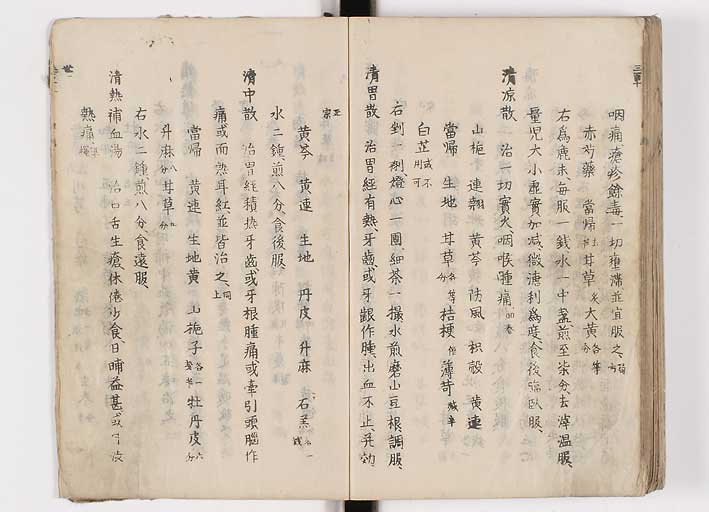 咽痛瘡疹餘毒一切壅滞並宜服之
赤芍藥 當歸 甘草炙 大黄各等分
右為麁末每服一錢水一中盞煎至柒分去滓温服
量児大小虚實加减微溏利為度食後臨臥服
清凉散 治一切實火咽喉腫痛
山梔 連翹 黄芩 防風 枳殼 黄連
當歸 生地 甘草各等分 桔梗 薄荷减半
白芷或不用可
右剉一剤燈心一團細茶一撮水煎磨山豆根調服
清胃散 治胃經有熱牙齒或牙齦作腫出血不止
黄芩 黄連 生地 丹皮 升麻 石羔各一錢
水二鍾煎八分食後服
清中散 治胃經積热牙齒或牙根腫痛或牽引頭腦作
痛或面热耳紅並皆治之 同上
當帰 黄連 生地黄 山梔子 牡丹皮
升麻八分 甘草
右水二鍾煎八分食遠服
清熱補血湯 治口舌生瘡休倦少食日晡益甚或
熱痛